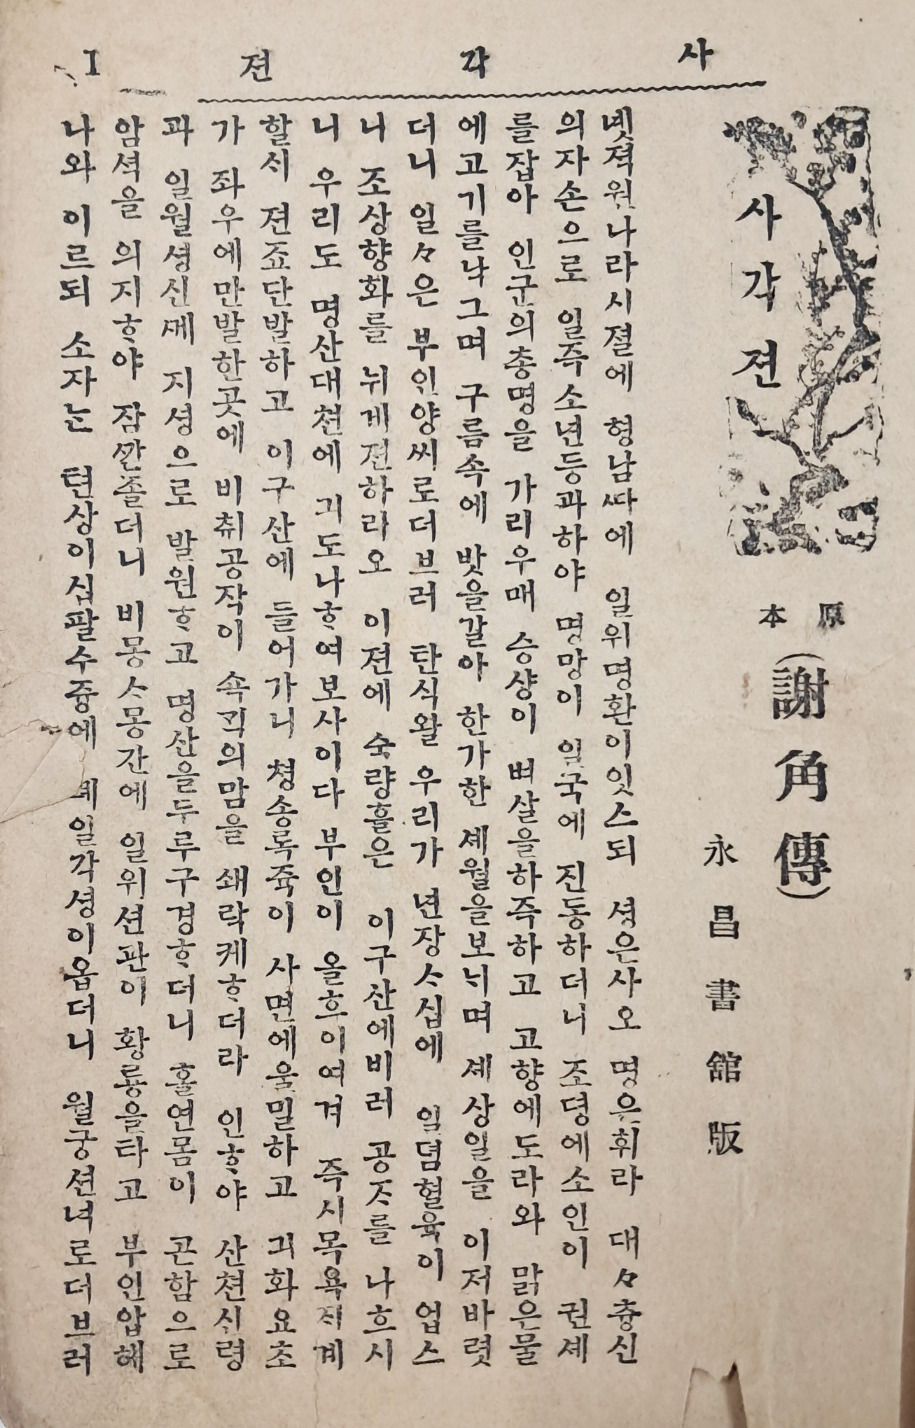 사각젼 1
사각젼
原本
(謝角傳)
永昌書舘版
녯적원나라시졀에 형남ᄯᅡ에 일위명환이잇스되 셩은사오 명은휘라 대々츙신
의자손으로 일즉소년등과하야 명망이 일국에 진동하더니 조뎡에소인이 권셰
를잡아 인군의총명을 가리우매 승샹이 벼살을하즉하고 고향에도라와 맑은물
에고기를낙그며 구름속에 밧을갈아 한가한 셰월을보ᄂᆡ며 셰상일을 이저바렷
더니 일々은 부인양씨로더브러 탄식왈 우리가 년장ᄉᆞ십에 일뎜혈육이 업스
니 조상향화를 뉘게젼하리오 이젼에 숙량흘은 이구산에비러 공ᄌᆞ를 나흐시
니 우리도 명산대쳔에 긔도나ᄒᆞ여보사이다 부인이 올흐이여겨 즉시목욕ᄌᆡ계
할시 젼죠단발하고 이구산에 들어가니 쳥송록쥭이 사면에울밀하고 긔화요초
가 좌우에만발한곳에 비취공작이 속ᄀᆡᆨ의맘을 쇄락케ᄒᆞ더라 인ᄒᆞ야 산쳔신령
과 일월셩신ᄭᅦ 지셩으로 발원ᄒᆞ고 명산을두루구경ᄒᆞ더니 홀연몸이 곤함으로
암셕을 의지ᄒᆞ야 잠ᄭᅡᆫ졸더니 비몽ᄉᆞ몽간에 일위션관이 황룡을타고 부인압헤
나와 이르되 소자는 텬상이십팔수즁에 뎨일각셩이옵더니 월궁션녀로더브러